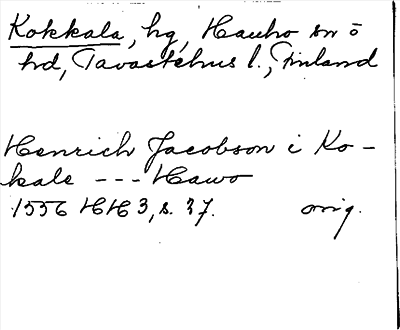 Kokkala, hg, Hauho sn o
hd, Tavastehus l., Finland
Henrich Jacobson i Ko-
kale --- Hawo
1556 HH 3, s. 37. orig.